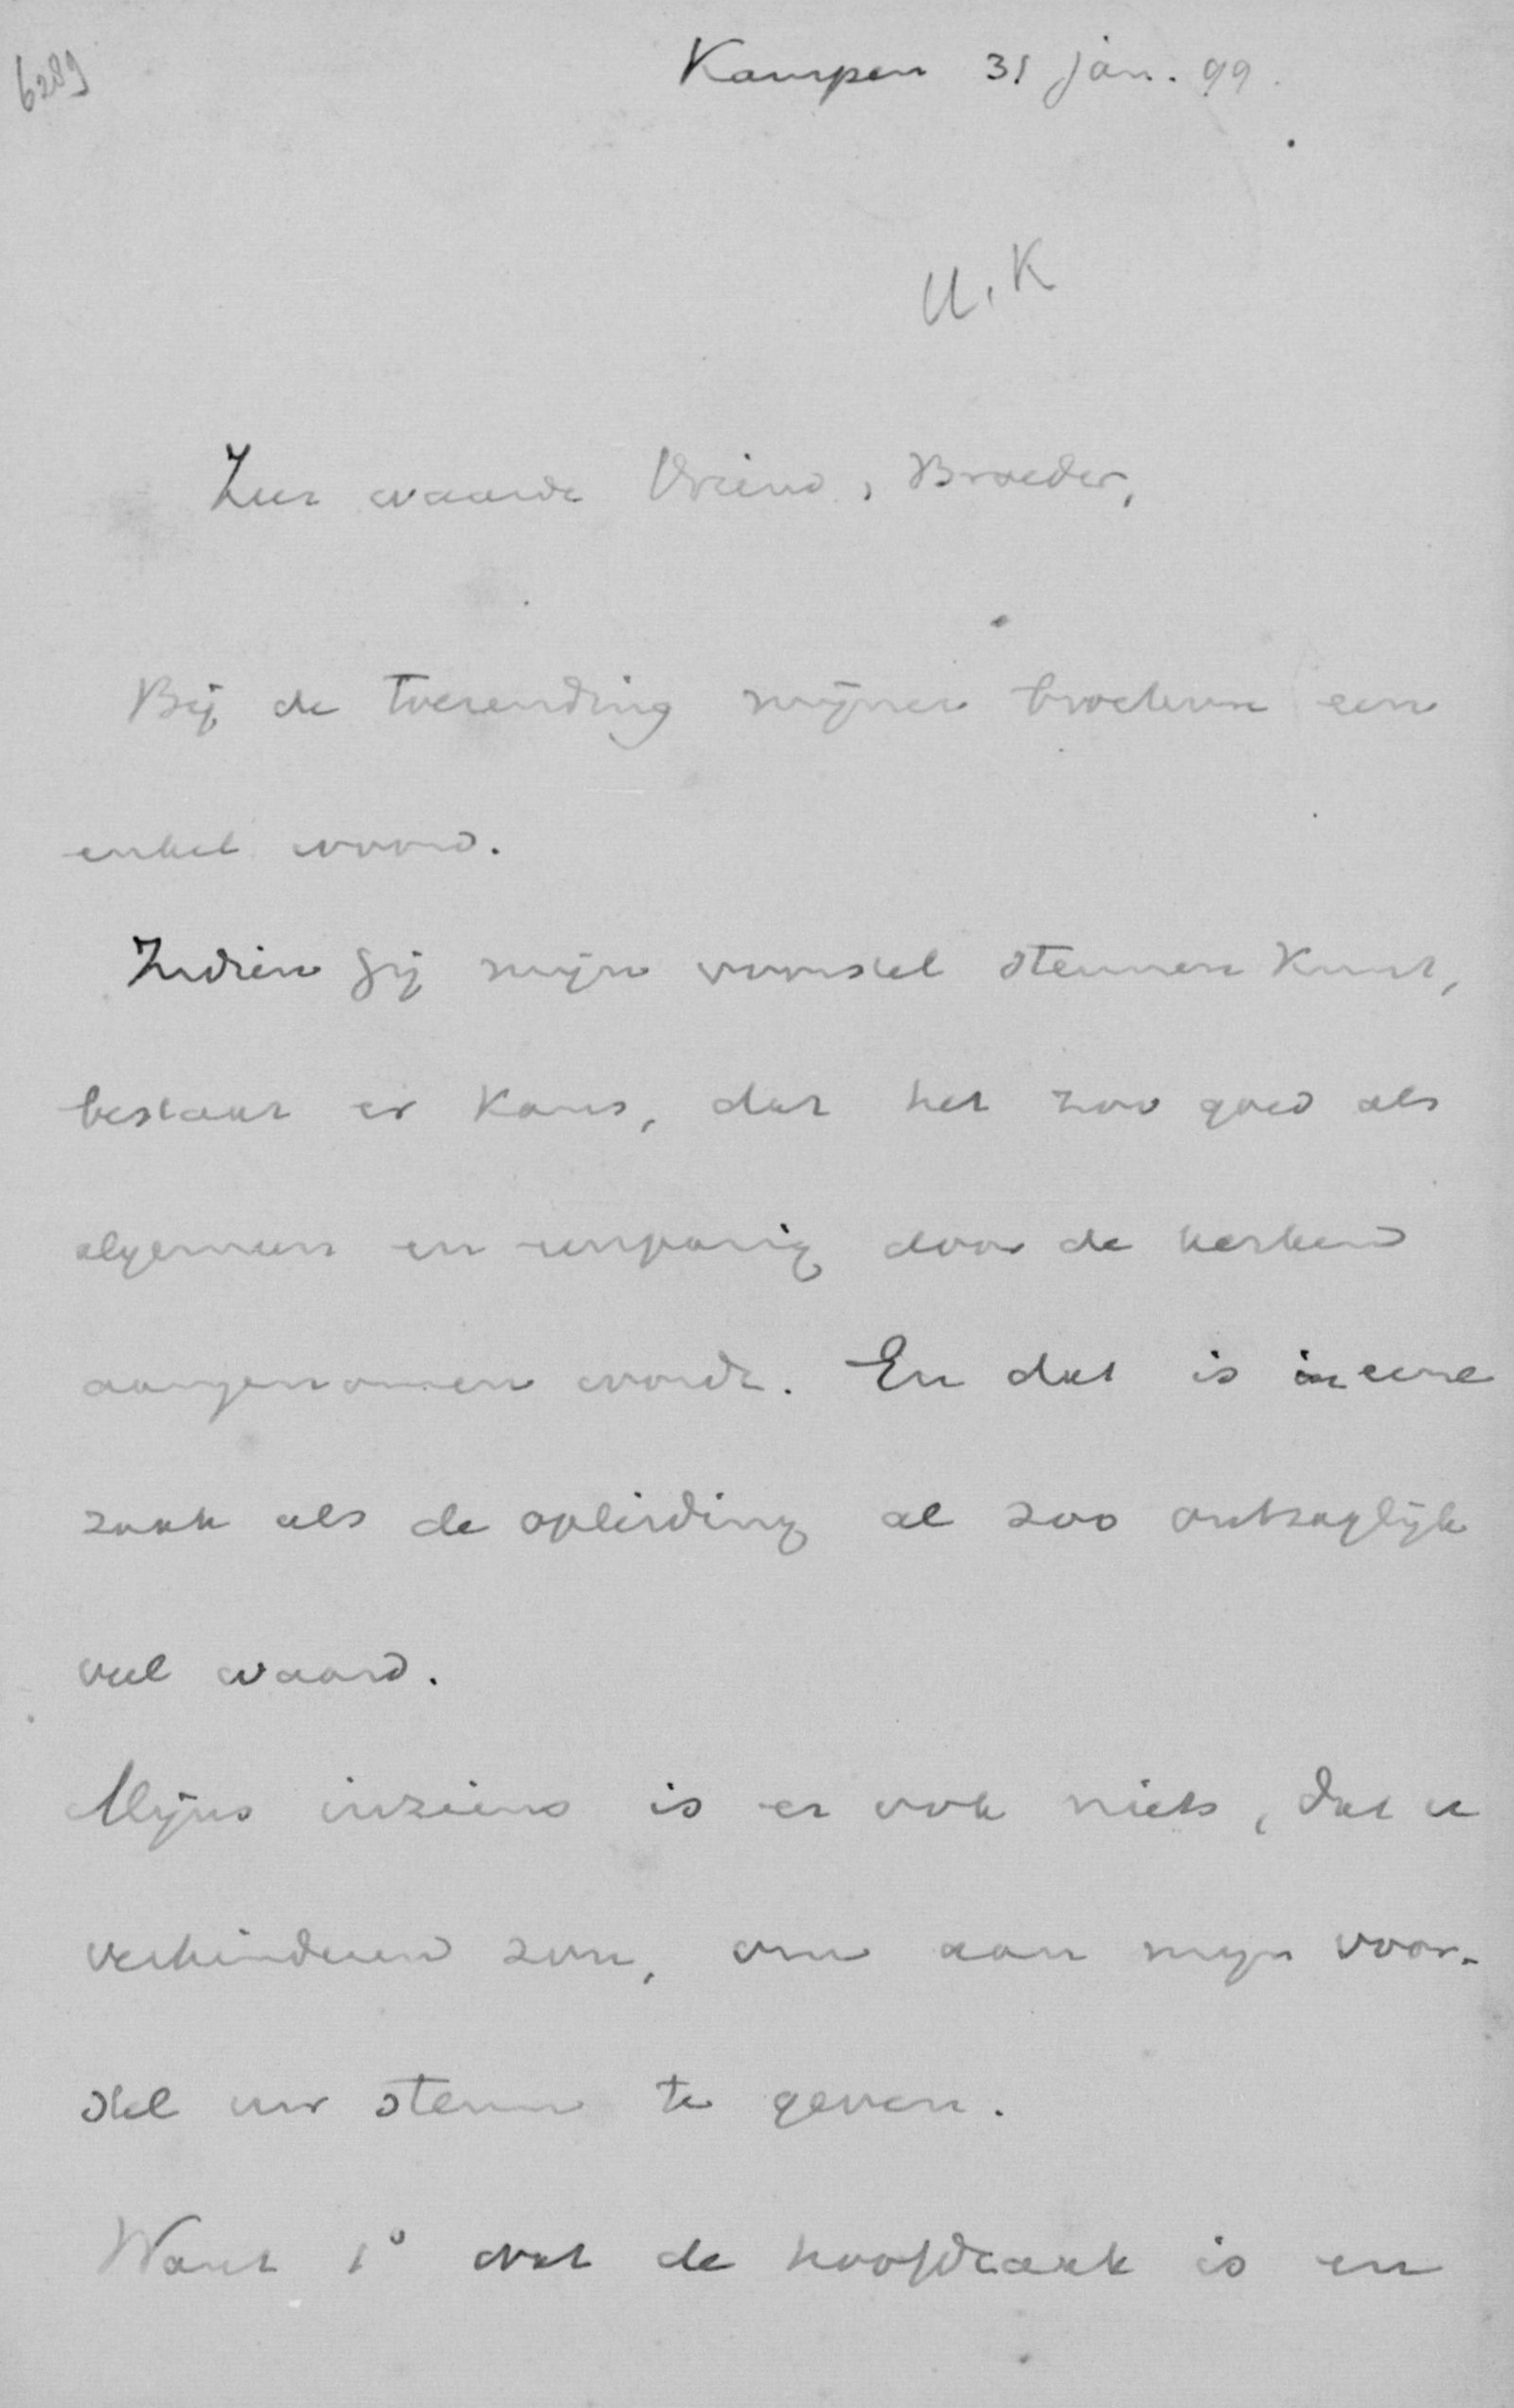 6289
Kampen 31 jan. 99.
U.K
Zeer waarde Vriend, Broeder,
Bij de toezending mijner brochure een
enkel woord.
Indien gij mijn voorstel steunen kunt,
bestaat er kans, dat het zoo goed als
algemeen en eenparig door de kerken
aangenomen wordt. En dat is in eene
zaak als de opleiding al zoo ontzaglijk
veel waard.
Mijns inziens is er ook niets, dat u
verhinderen zou, om aan mijn voor-
stel uw steun te geven.
Want 1° wat de hoofdzaak is en